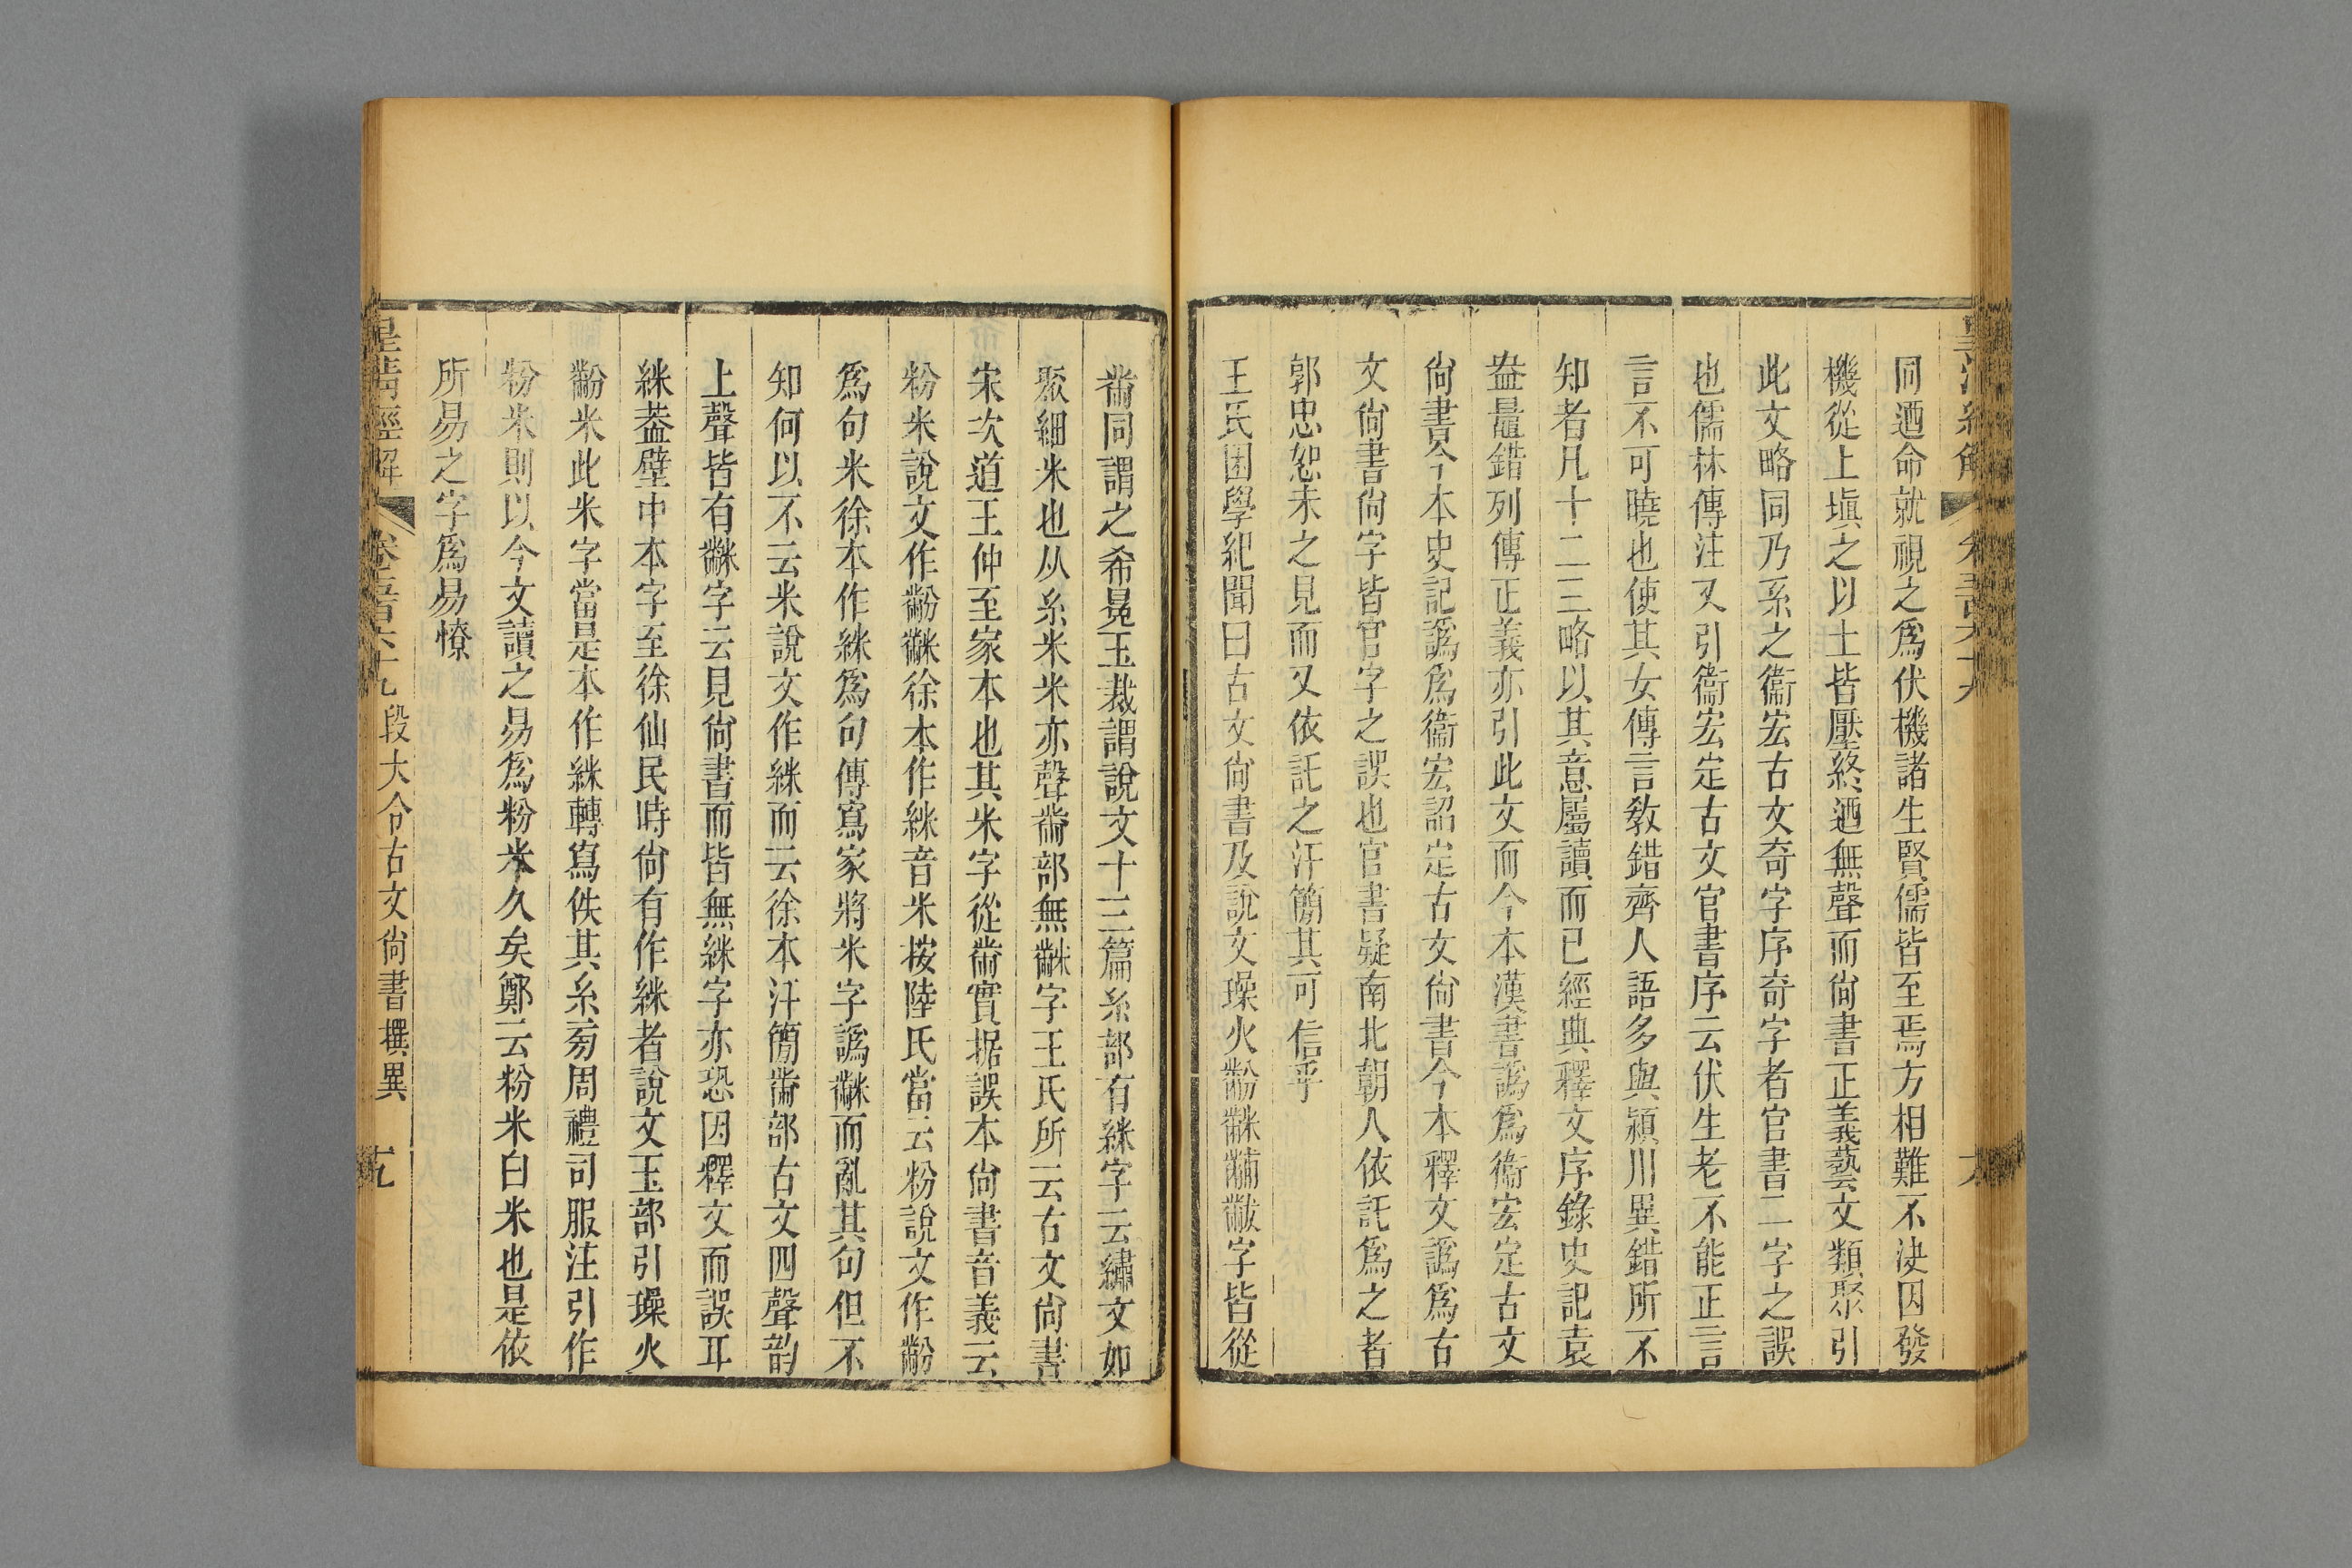 同迺命就視之爲伏機諸生賢儒皆至焉方相難不決因發
機從上塡之以土皆壓終迺無聲而尙書正義藝文類聚引
此文略同乃系之衞宏古文奇字序奇字者官書二字之誤
也儒林傳注又引衞宏定古文官書序云伏生老不能正言
言不可曉也使其女傳言敎錯齊人語多與潁川異錯所不
知者凡十二三略以其意屬讀而已經典釋文序錄史記袁
盎鼂錯列傳正義亦引此文而今本漢書譌爲衞宏定古文
尙書今本史記譌爲衞宏詔定古文尙書今本釋文譌爲古
文尙書尙字皆官字之誤也官書疑南北朝人依託爲之者
郭忠恕未之見而又依託之汗簡其可信乎
王氏困學紀聞曰古文尙書及說文璪火黺䋛黼黻字皆從
黹同謂之希冕玉裁謂說文十三篇糸部有䋛字云繡文如
聚細米也从糸米米亦聲黹部無䋛字王氏所云古文尙書
宋次道王仲至家本也其米字從黹實據誤本尙書音義云
粉米說文作黺䋛徐本作䋛音米按陸氏當云粉說文作黺
爲句米徐本作䋛爲句傳寫家將米字譌䋛而亂其句但不
知何以不云米說文作䋛而云徐本汗簡黹部古文四聲韵
上聲皆有䋛字云見尙書而皆無䋛字亦恐因釋文而誤耳
䋛葢壁中本字至徐仙民時尙有作䋛者說文玉部引璪火
黺米此米字當是本作䋛轉寫佚其糸旁周禮司服注引作
粉米則以今文讀之易爲粉米久矣鄭云粉米白米也是依
所易之字爲易憭
皇淸經解 卷五百六十九 段大令古文尙書撰異 九